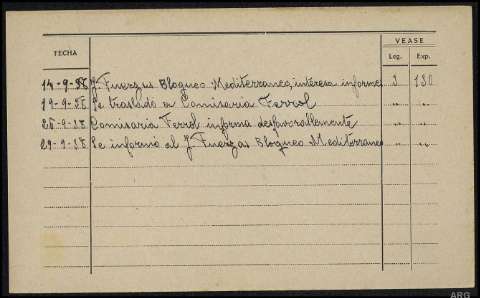 VEASE
FECHA Leg. Exp.
14-9-38 J. Fuerzas Bloqueo Mediterraneo, interesa informes 3 130
19-9-38 Se traslado a Comisaria Ferrol " "
26-9-38 Comisaria Ferrol informa desfavorablemente " "
29-9-38 Se informo al J. Fuerzas Bloqueo Mediterraneo " "
ARG